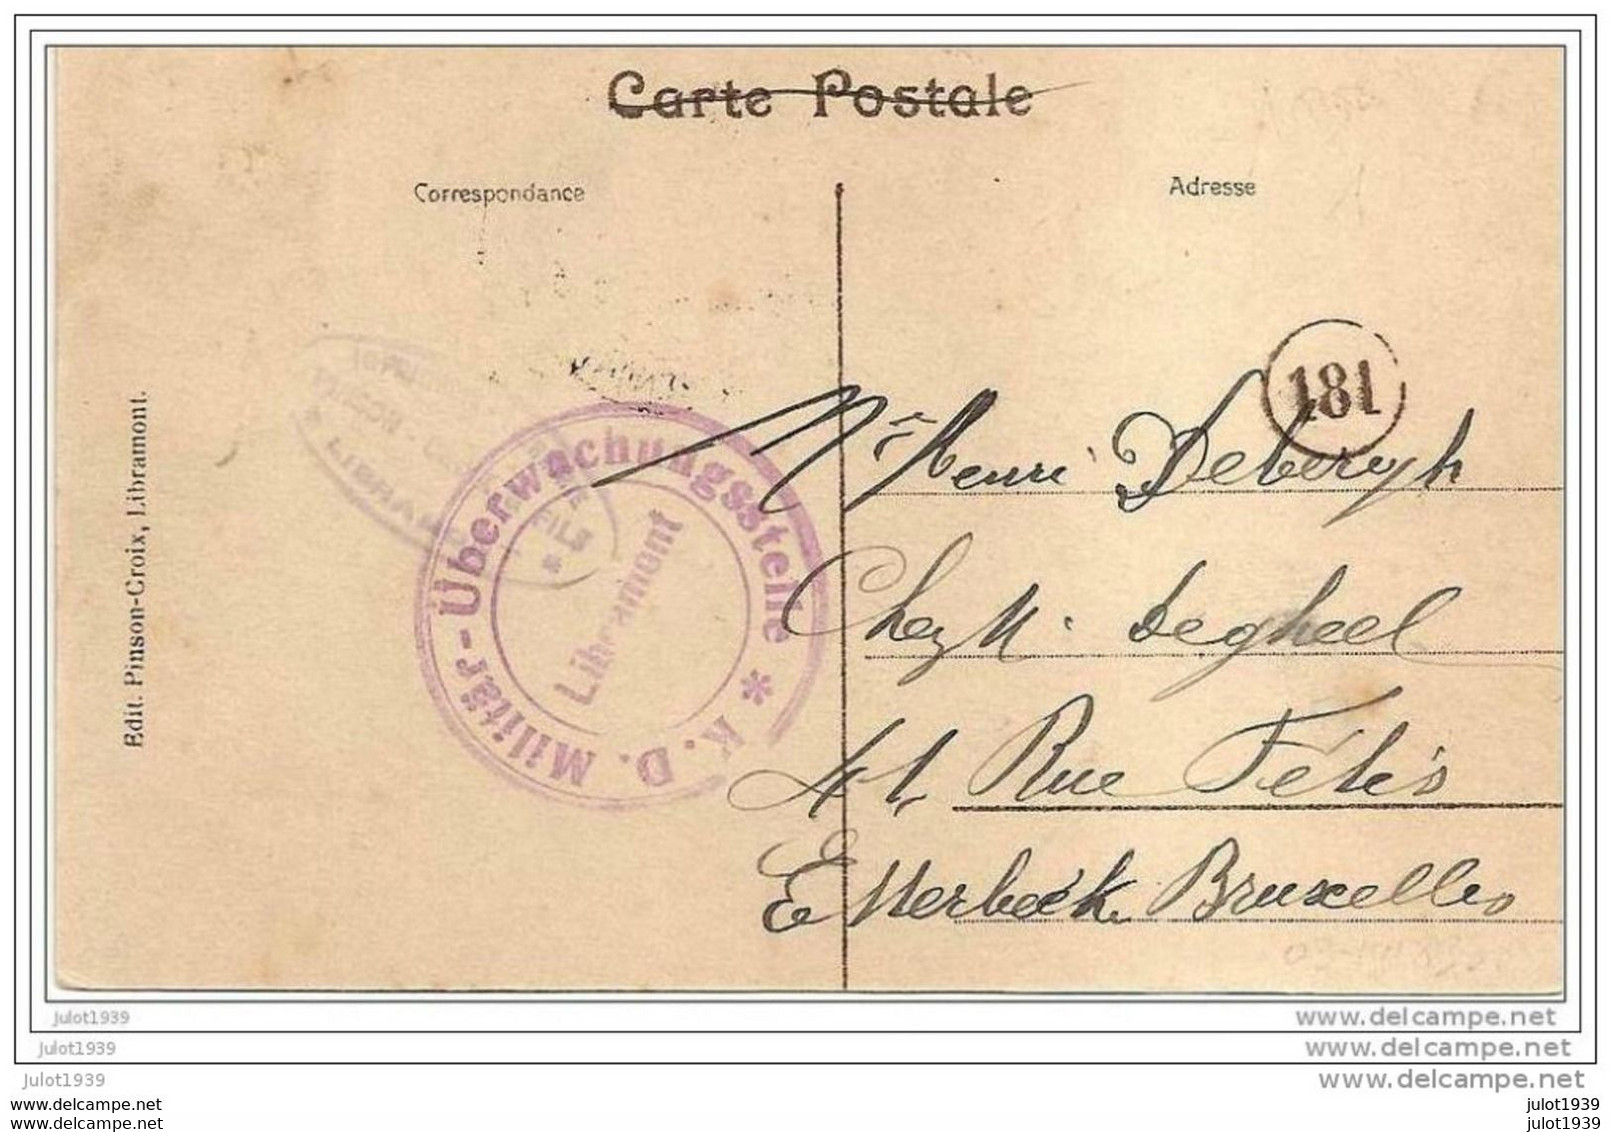 Carte Postale
Correspondance
Adresse
181
Edit. Pinson-Croix, Libramont.
FILS
K. D. Militär-Überwachungsstelle *
Libramont
Mr Henri Deberyh
Chez M. Degheel
41, Rue Fétis
Etterbeek Bruxelles
julot1939
www.delcampe.net
julot1939
www.delcampe.net
julot1939
www.delcampe.net
www.delcampe.net
julot1939
www.delcampe.net
julot1939